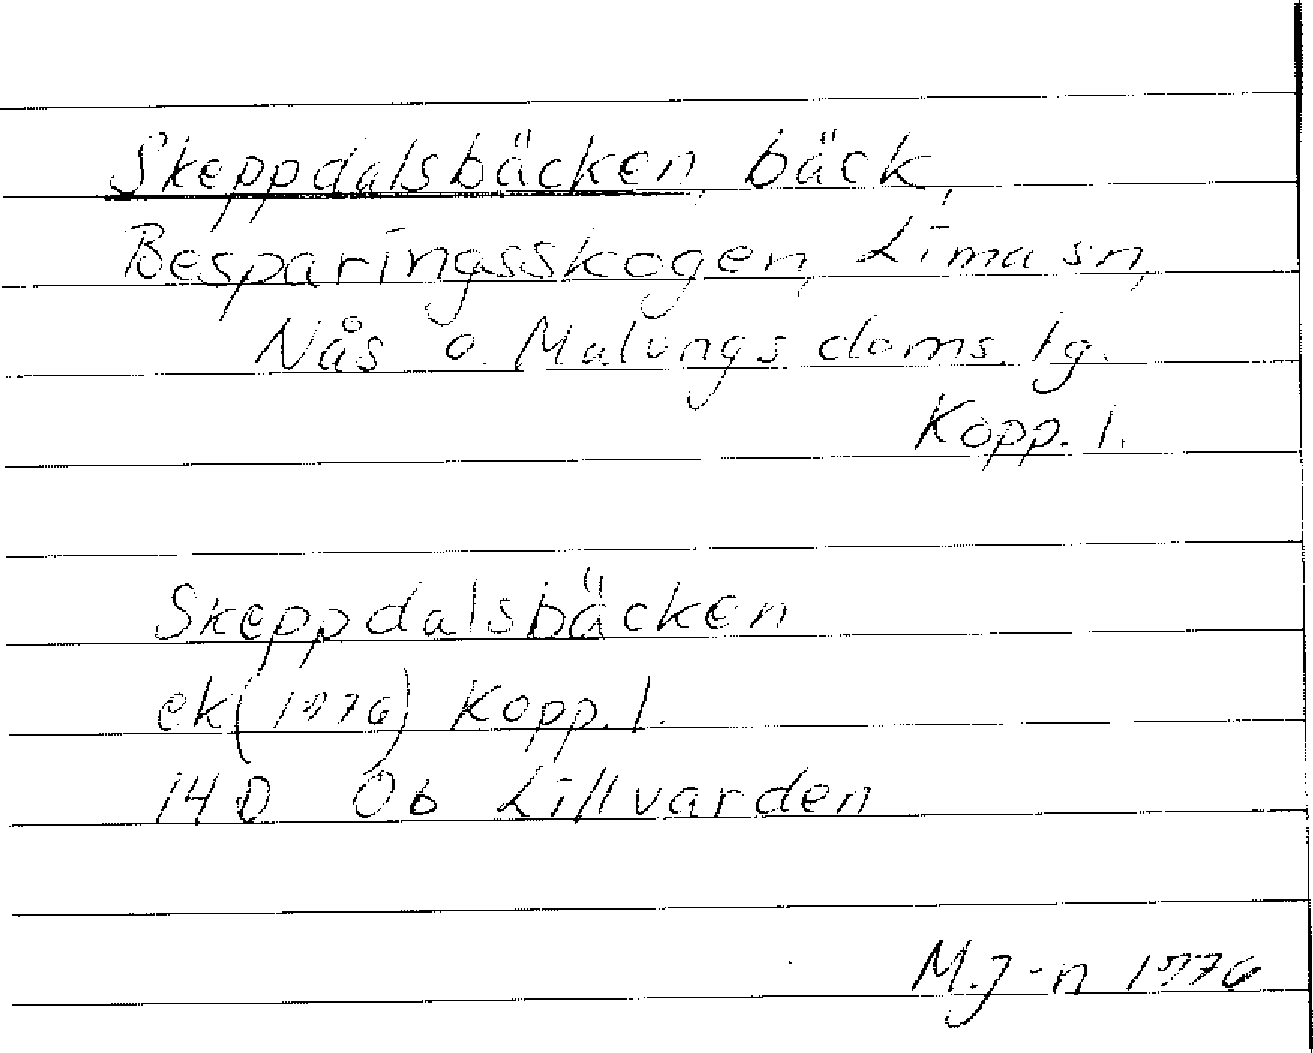 Skeppdalsbäcken, bäck,
Besparingsskogen, Lima sn,
Nås o. Malungs doms. lg.
Kopp. l.
Skeppdalsbäcken
ek (1976) Kopp. l.
14 D Ob Lillvarden
M.J-n 1976